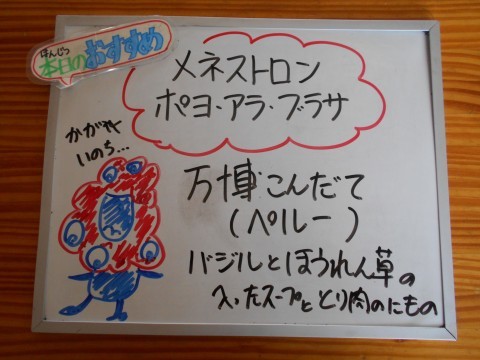 ほんじつ
本日のおすすめ
メネストロン
ポヨ・アラ・ブラサ
かがやけ
いのち…
万博こんだて
(ペルー)
バジルとほうれん草の
入ったスープととり肉のにもの